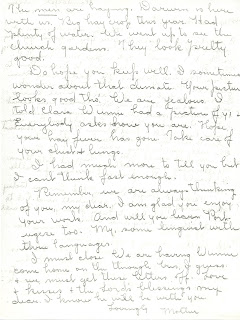 The men are haying. Darwin is here
with us. Big hay crop this year. Had
plenty of water. We went up to see the
church gardens. They look pretty
good.
Do hope you keep well. I sometimes
wonder about that climate. Your picture
looks good tho. We are jealous. I
told Clara Winnie had a picture of you
Everybody asks where you are. Hope
your hay fever has gone. Take care of
your chest & lungs.
I had much more to tell you but
I can't think fast enough.
Remember, we are always thinking
of you, my dear. I am glad you enjoy
your work. And will you learn Port
ugese too. My, some linguist with
three languages.
I must close. We are having Winnie
come home on the through bus, I guess
& we must get these letters off. Love
& kisses & the Lord's blessings my
dear. I know he will be with you
Lovingly Mother